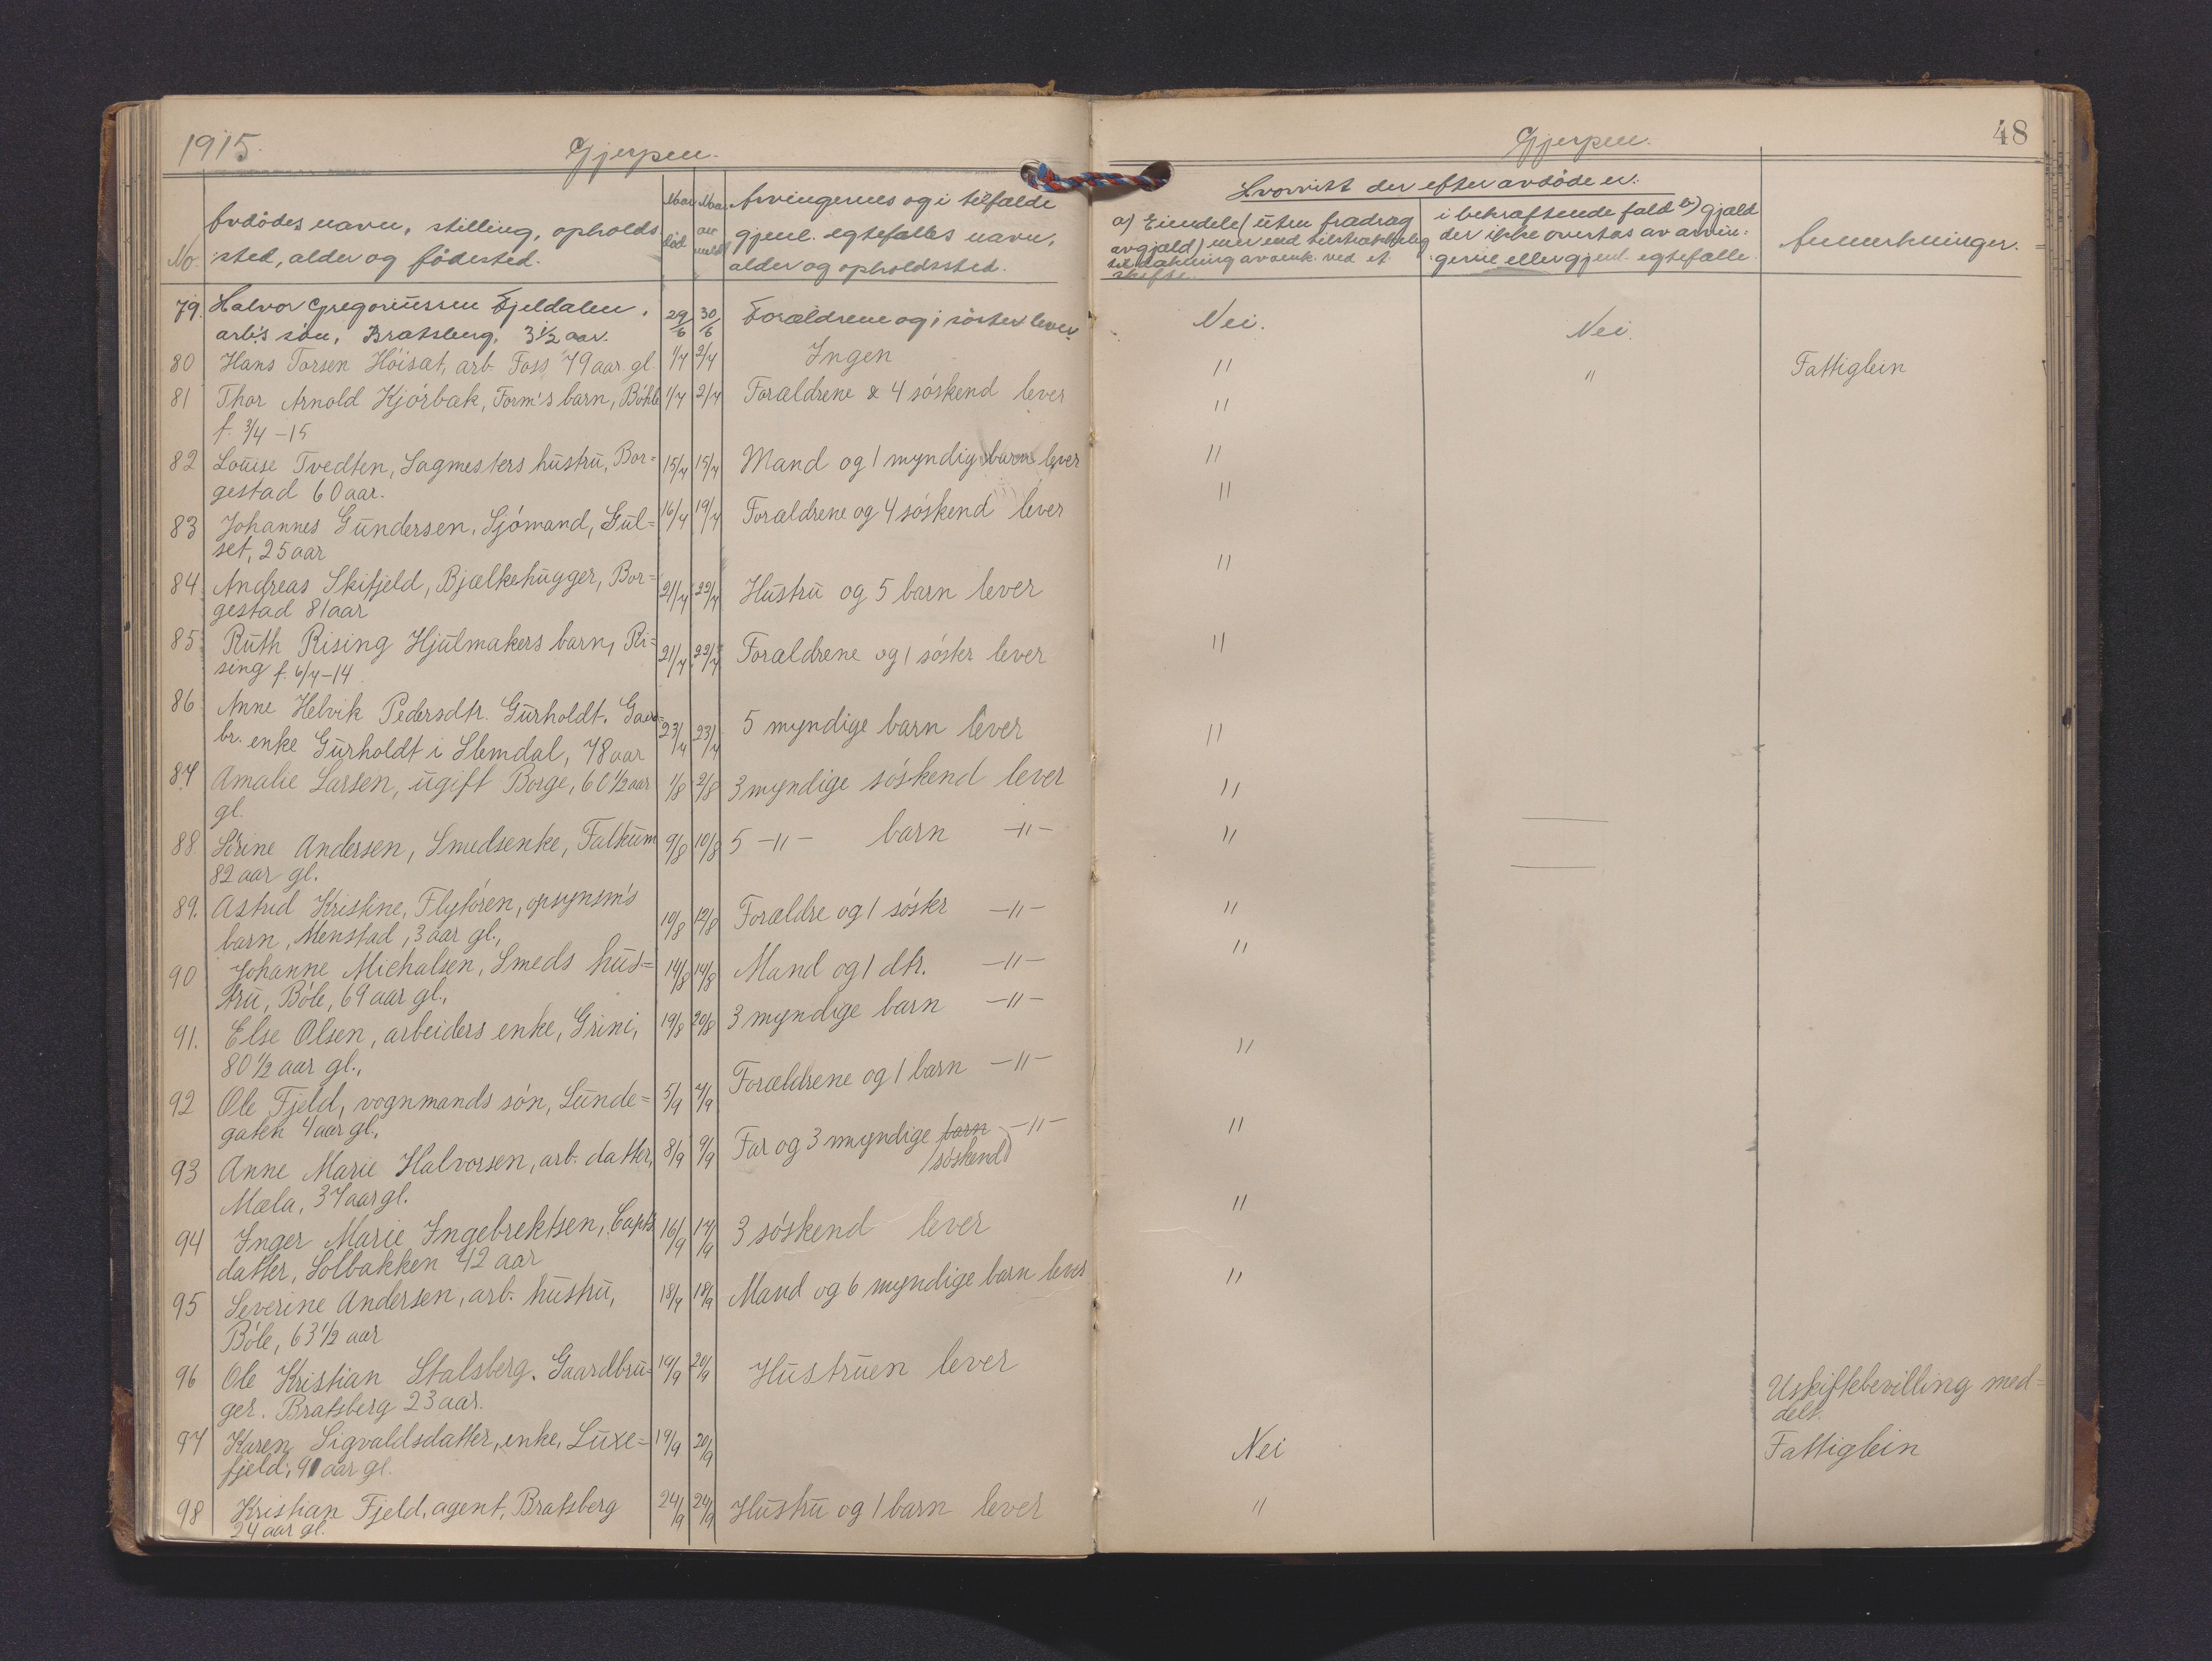 1915.
Gjerpen.
No.
Avdødes navn, stilling, opholds
sted, alder og fødested.
død
Arvingernes og i tilfælde
gjenl. egtefælles navn,
alder og opholdssted.
79. Halvor Gregoriussen Fjeldalen, 29/6 30/6 Forældrene og 1 søster lever
arb's søn, Bratsberg, 3 1/2 aar.
80 Hans Torsen Høisæt, arb. Foss 79 aar gl. 1/7 2/7 Ingen
81 Thor Arnold Kjørbæk, Form's barn, Bøhle 1/7 2/7 Forældrene & 4 søskend lever
f. 3/4 - 15
82 Louise Tvedten, Sagmesters hustru, Bor= 15/7 15/7 Mand og 1 myndig barn lever
gestad 60 aar.
83 Johannes Gundersen, Sjømand, Gul= 16/7 19/7 Forældrene og 4 søskend lever
set, 25 aar
84 Andreas Skifjeld, Bjælkehugger, Bor= 21/7 22/7 Hustru og 5 barn lever
gestad 81 aar
85 Ruth Rising Hjulmakers barn, Ri= 21/7 22/7 Forældrene og 1 søster lever
sing f. 6/7 - 14
86 Anne Helvik Pedersdtr. Gurholdt. Gaard= 23/7 23/7 5 myndige barn lever
br. enke Gurholdt i Slemdal, 78 aar
87 Amalie Larsen, ugift Borge, 60 1/2 aar 1/8 2/8 3 myndige søskend lever
gl.
88. Sirine Andersen, Smedsenke, Falkum 9/8 10/8 5 -"- barn -"-
82 aar gl.
89. Astrid Kristine, Flytøren, opsynsm's 10/8 12/8 Forældre og 1 søster -"-
barn, Menstad, 3 aar gl.,
90 Johanne Michalsen, Smeds hus= 14/8 14/8 Mand og 1 dtr. -"-
tru, Bøle, 69 aar gl.,
91. Else Olsen, arbeiders enke, Grini, 19/8 20/8 3 myndige barn -"-
80 1/2 aar gl.,
92 Ole Fjeld, vognmands søn, Lunde= 5/9 7/9 Forældrene og 1 barn -"-
gaten 4 aar gl.,
93 Anne Marie Halvorsen, arb. datter, 8/9 9/9 Far og 3 myndige barn -"-
søskend
Mæla, 37 aar gl.
94 Inger Marie Ingebrektsen, Capts 16/9 17/9 3 søskend lever
datter, Solbakken 42 aar
95 Severine Andersen, arb. hustru, 18/9 18/9 Mand og 6 myndige barn lever
Bøle, 63 1/2 aar
96 Ole Kristian Stalsberg. Gaardbru= 19/9 20/9 Hustruen lever
ger. Bratsberg 23 aar.
97 Karen Sigvaldsdatter, enke, Luxe= 19/9 20/9
fjeld, 91 aar gl.
98 Kristian Fjeld, agent, Bratsberg 24/9 24/9 Hustru og 1 barn lever
24 aar gl.
Gjerpen.
48
Hvorvidt der efter avdøde er:
a) Eiendele (uten fradrag
avgjæld) mer end tilstrækkelig
til dækning av omk. ved et
skifte.
i bekræftende fald b) gjæld
der ikke overtas av arvin-
gerne eller gjenl. egtefælle.
Anmerkninger.
Nei. Nei.
" " Fattiglein
"
"
"
"
"
"
"
"
"
"
"
"
"
"
Uskiftebevilling med=
delt.
Nei Fattiglein
"